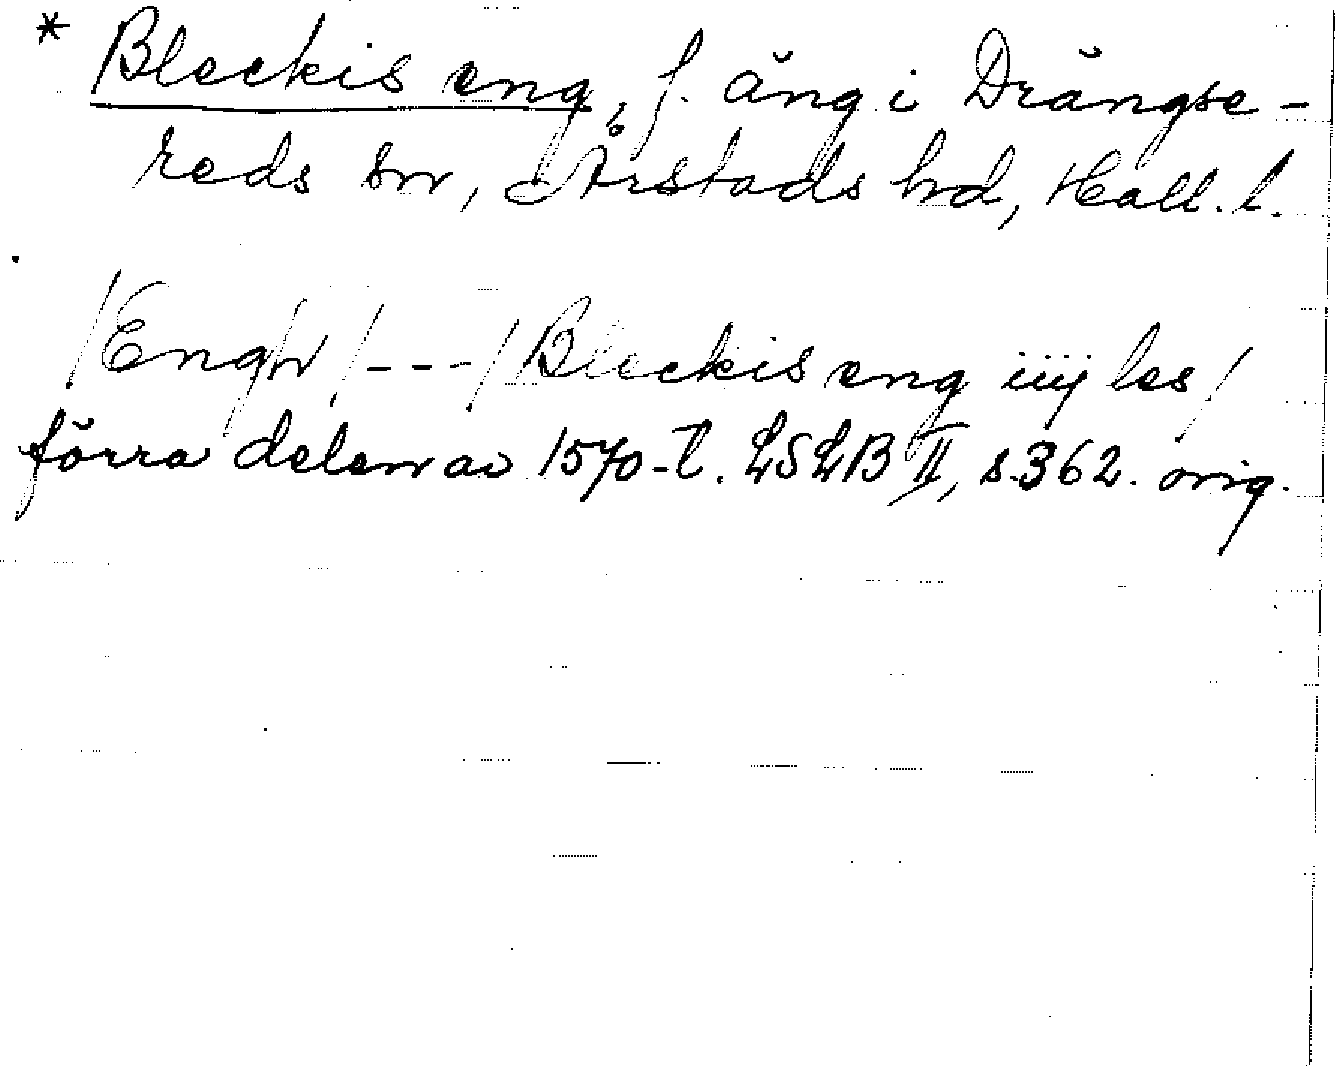 * Bleckis eng, f. äng i Drängse-
reds sn, Årstads hd, Hall. l.
/Eng/n/ /---/ Bleckis eng iiij les/
förra delen av 1570-t. LSLB II, s. 362. orig.